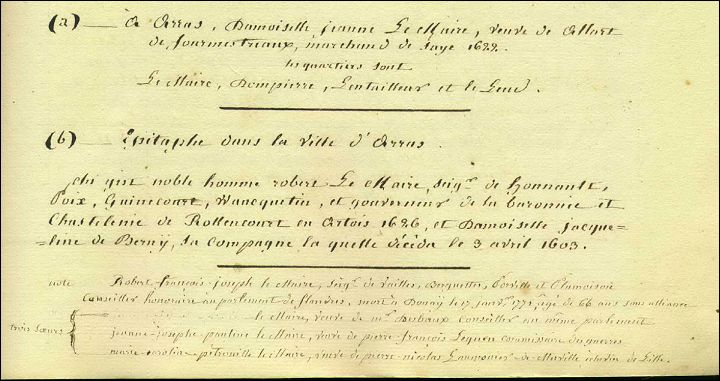 (a) — à Arras, Damoiselle jeanne Le Maire, veuve de Allart
de fourmestraux, marchand de saye 1622.
les quartiers sont
Le Maire, Dompierre, Lentailleur et le Leud.
(b) — Epitaphe dans la ville d'Arras.
Chi gist noble homme robert Le Maire, seigr. de honnault,
Poix, Guinecourt, Wancquetin, et gouverneur de la baronnie et
Chastelenie de Rollencourt en Artois 1626, et Damoiselle jacque=
=line de Berny, sa compagne la quelle décéda le 3 avril 1603.
note Robert-françois-joseph le Maire, seigr. de Vailles, et Plumoison
Conseiller honoraire au parlement de flandres, mort à Douay le 17 janvr. 1771, agé de 66 ans sans alliance
trois sœurs le Maire, veuve de mr. Conseiller au même parlement
jeanne-joseph-pauline le Maire, veuve de pierre-françois Lequen commissaire des guerres
marie- -pétronille le Maire, veuve de pierre-nicolas -de-Marville échevin de Lille.